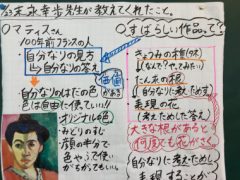 末永幸歩先生が教えてくれたこと。
○マティスさん
100年前フランスの人
自分なりの見方
自分なりの答え
自分なりのはだの色
色は自由に使っていい!!
オリジナル色
みどりのすじ
顔の半分で
色やぬり
○すばらしい作品って?
きょうみの種
(なんで?やってみたい)
たんきゅうの根
(自分なりに考えためす)
表現の花
(考えためした答え)
大きな根があると
何度も花がさく
自分なりに考えためし
表現すること